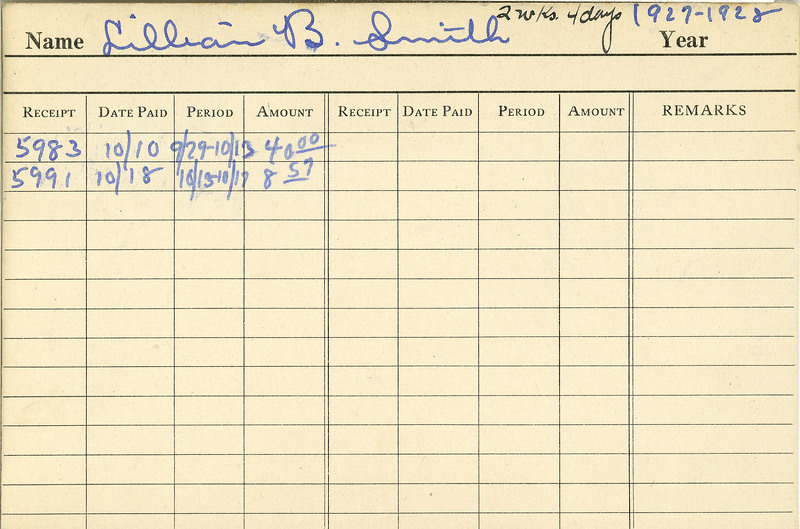 Name Lillian B. Smith 2 wks. 4 days 1927-1928 Year
RECEIPT DATE PAID PERIOD AMOUNT RECEIPT DATE PAID PERIOD AMOUNT REMARKS
5983 10/10 9/29-10/13 40.00
5991 10/18 10/13-10/17 8 57